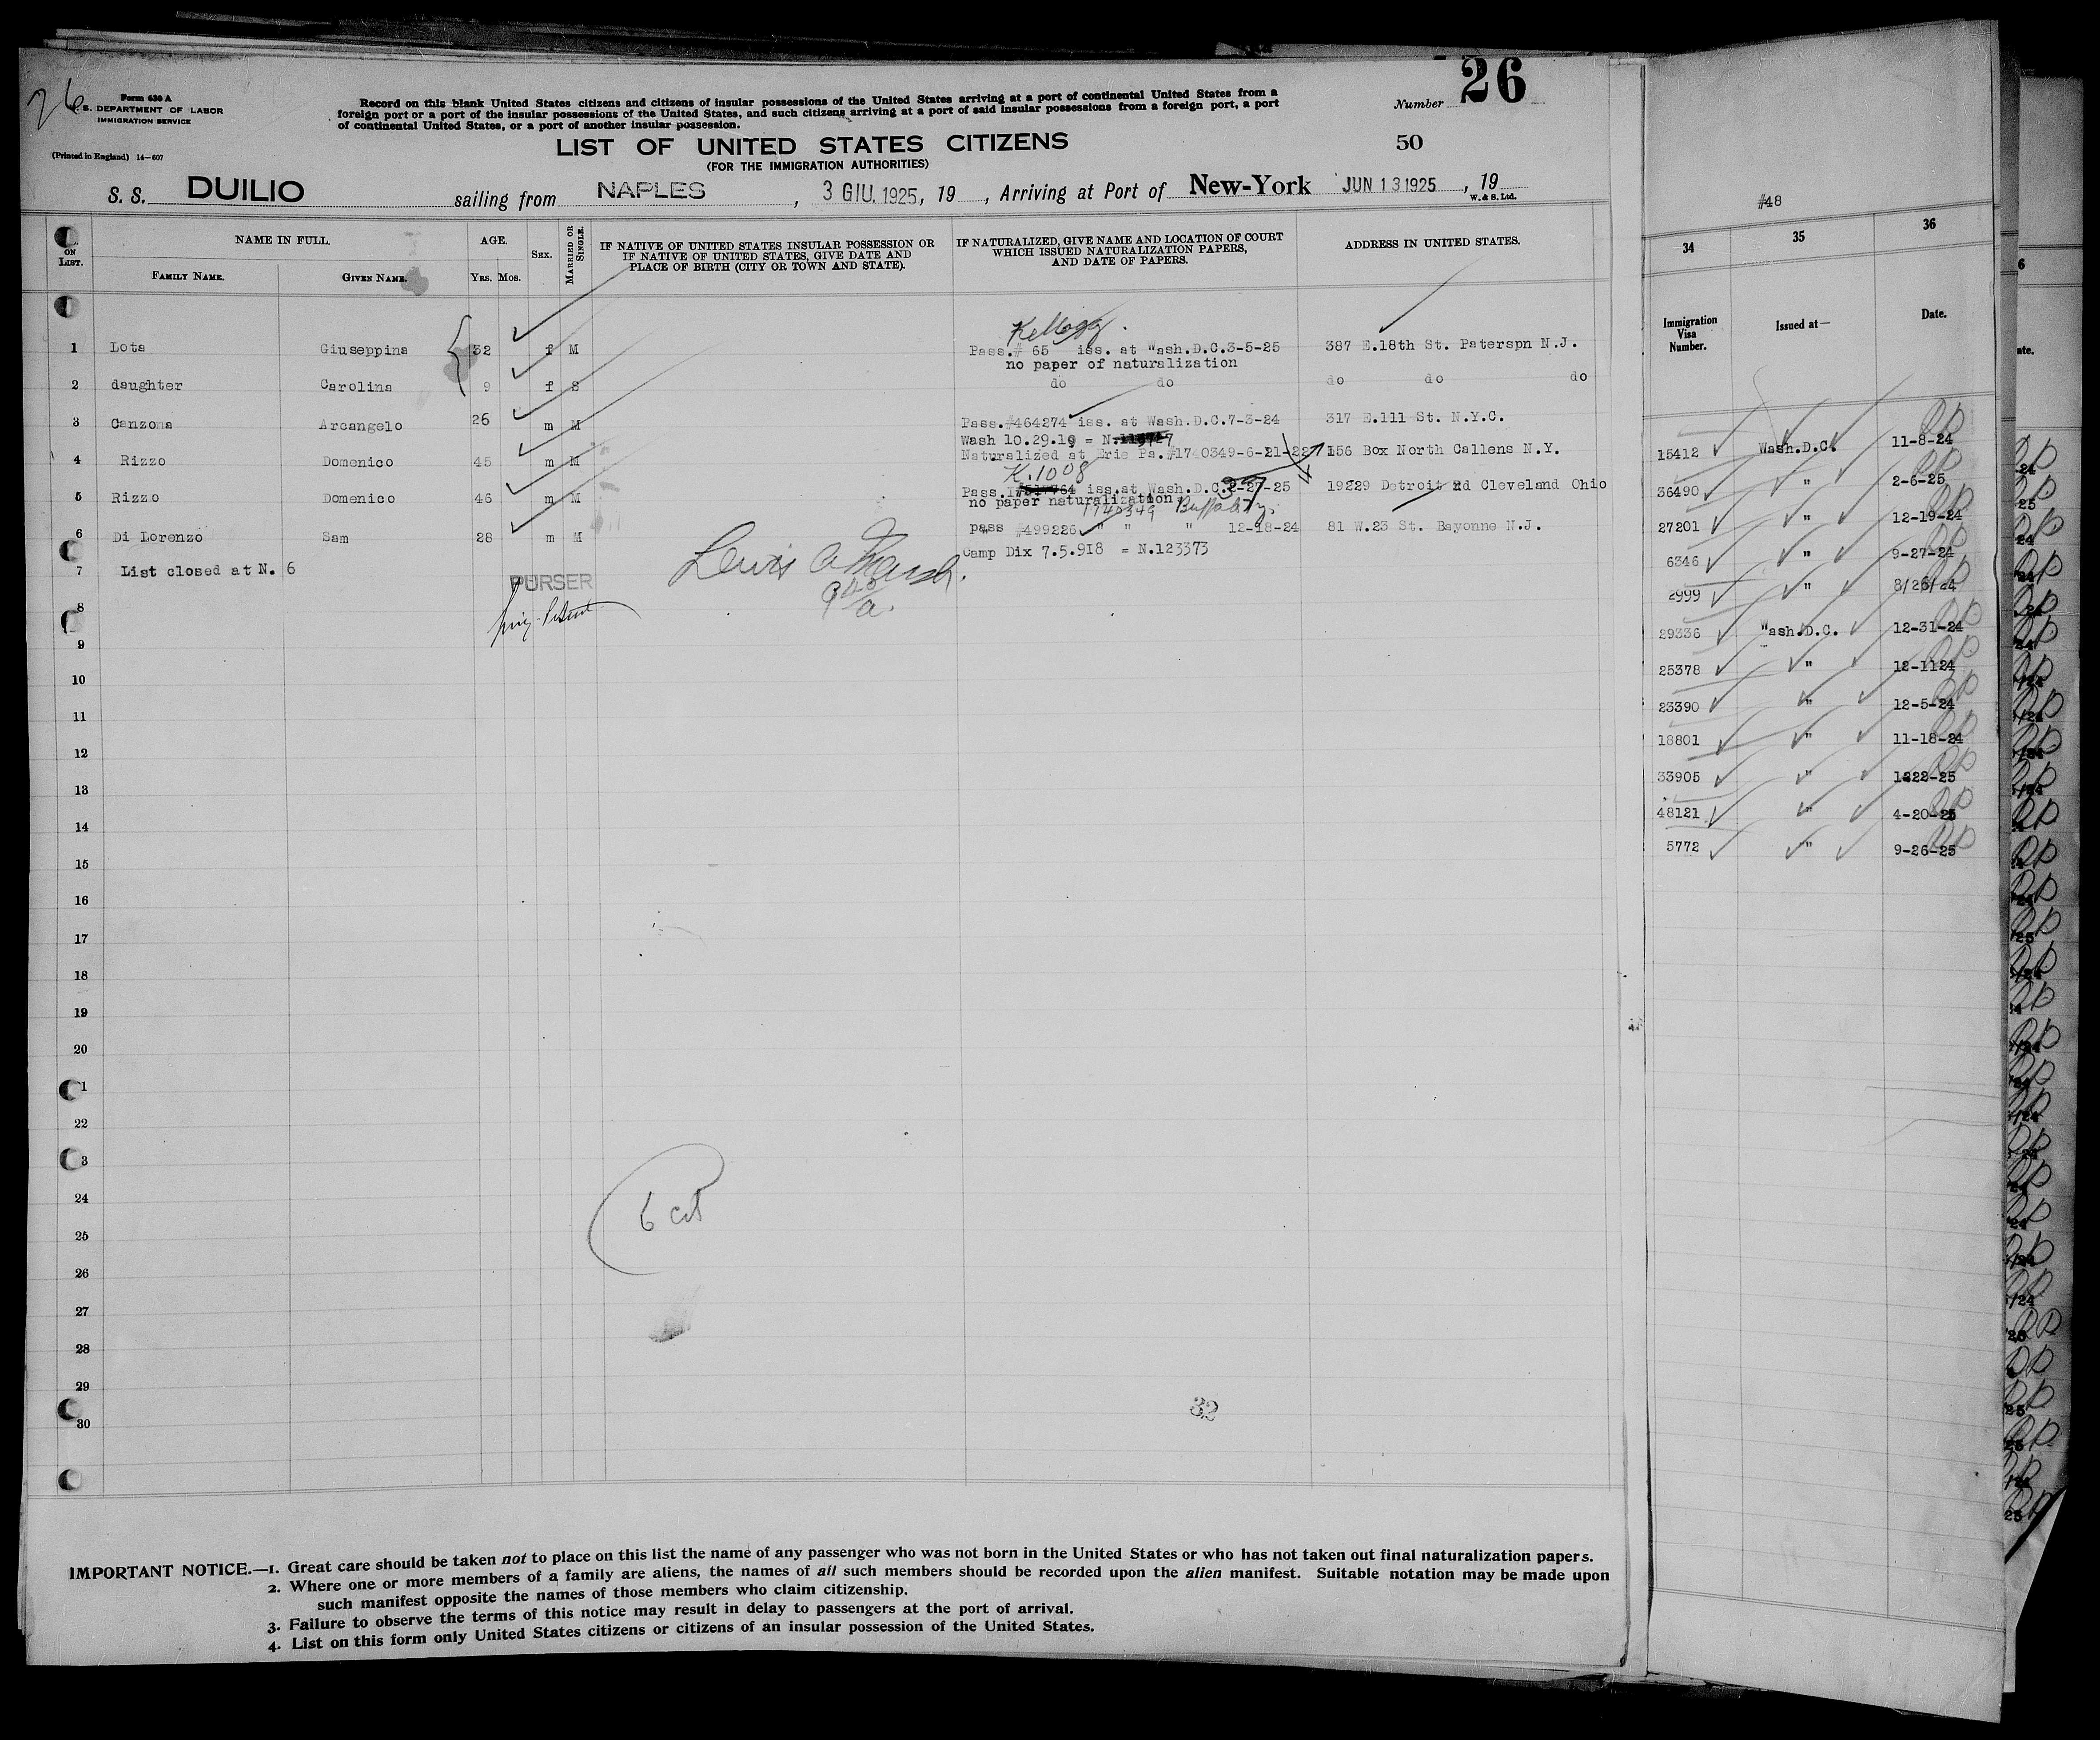 26
Form 630 A
U. S. DEPARTMENT OF LABOR
IMMIGRATION SERVICE
(Printed in England) 14-607
Record on this blank United States citizens and citizens of insular possessions of the United States arriving at a port of continental United States from a
foreign port or a port of the insular possessions of the United States, and such citizens arriving at a port of said insular possessions from a foreign port, a port
of continental United States, or a port of another insular possession.
Number 26
LIST OF UNITED STATES CITIZENS
50
(FOR THE IMMIGRATION AUTHORITIES)
S. S. DUILIO sailing from NAPLES, 3 GIU. 1925, 19, Arriving at Port of New-York JUN 13 1925, 19
W. & S. Ltd.
ON LIST.
NAME IN FULL.
FAMILY NAME.
GIVEN NAME.
AGE.
YRS. MOS.
SEX.
MARRIED OR SINGLE.
IF NATIVE OF UNITED STATES INSULAR POSSESSION OR
IF NATIVE OF UNITED STATES, GIVE DATE AND
PLACE OF BIRTH (CITY OR TOWN AND STATE).
IF NATURALIZED, GIVE NAME AND LOCATION OF COURT
WHICH ISSUED NATURALIZATION PAPERS,
AND DATE OF PAPERS.
ADDRESS IN UNITED STATES.
Kellogg.
1 Lota Giuseppina 32 f M Pass.# 65 iss. at Wash.D.C.3-5-25 387 E.18th St. Paterspn N.J.
no paper of naturalization
2 daughter Carolina 9 f S do do do do do
3 Canzona Arcangelo 26 m M Pass.#464274 iss. at Wash.D.C.7-3-24 317 E.111 St. N.Y.C.
Wash 10.29.19 = N.
4 Rizzo Domenico 45 m M Naturalized at Erie Pa.#1740349-6-21-22 156 Box North Callens N.Y.
K.1008
5 Rizzo Domenico 46 m M Pass. iss.at Wash.D.C.2-27-25 19829 Detroit Rd Cleveland Ohio
no paper naturalization
1740349 Buffalo
6 Di Lorenzo Sam 28 m M pass #499226 " " " 12-18-24 81 W.23 St. Bayonne N.J.
Camp Dix 7.5.918 = N.123373
7 List closed at N. 6
PURSER
Lewis A
8
9
10
11
12
13
14
15
16
17
18
19
20
1
22
3
24
6 cit
25
26
27
28
29
32
30
IMPORTANT NOTICE.—1. Great care should be taken not to place on this list the name of any passenger who was not born in the United States or who has not taken out final naturalization papers.
2. Where one or more members of a family are aliens, the names of all such members should be recorded upon the alien manifest. Suitable notation may be made upon
such manifest opposite the names of those members who claim citizenship.
3. Failure to observe the terms of this notice may result in delay to passengers at the port of arrival.
4. List on this form only United States citizens or citizens of an insular possession of the United States.
#48
34 35 36
Immigration Visa Number. Issued at— Date.
15412 Wash.D.C. 11-8-24
36490 " 2-6-25
27201 " 12-19-24
6346 " 9-27-24
2999 " 8/26/24
29336 Wash.D.C. 12-31-24
25378 " 12-1124
23390 " 12-5-24
18801 " 11-18-24
33905 " 1222-25
48121 " 4-20-25
5772 " 9-26-25